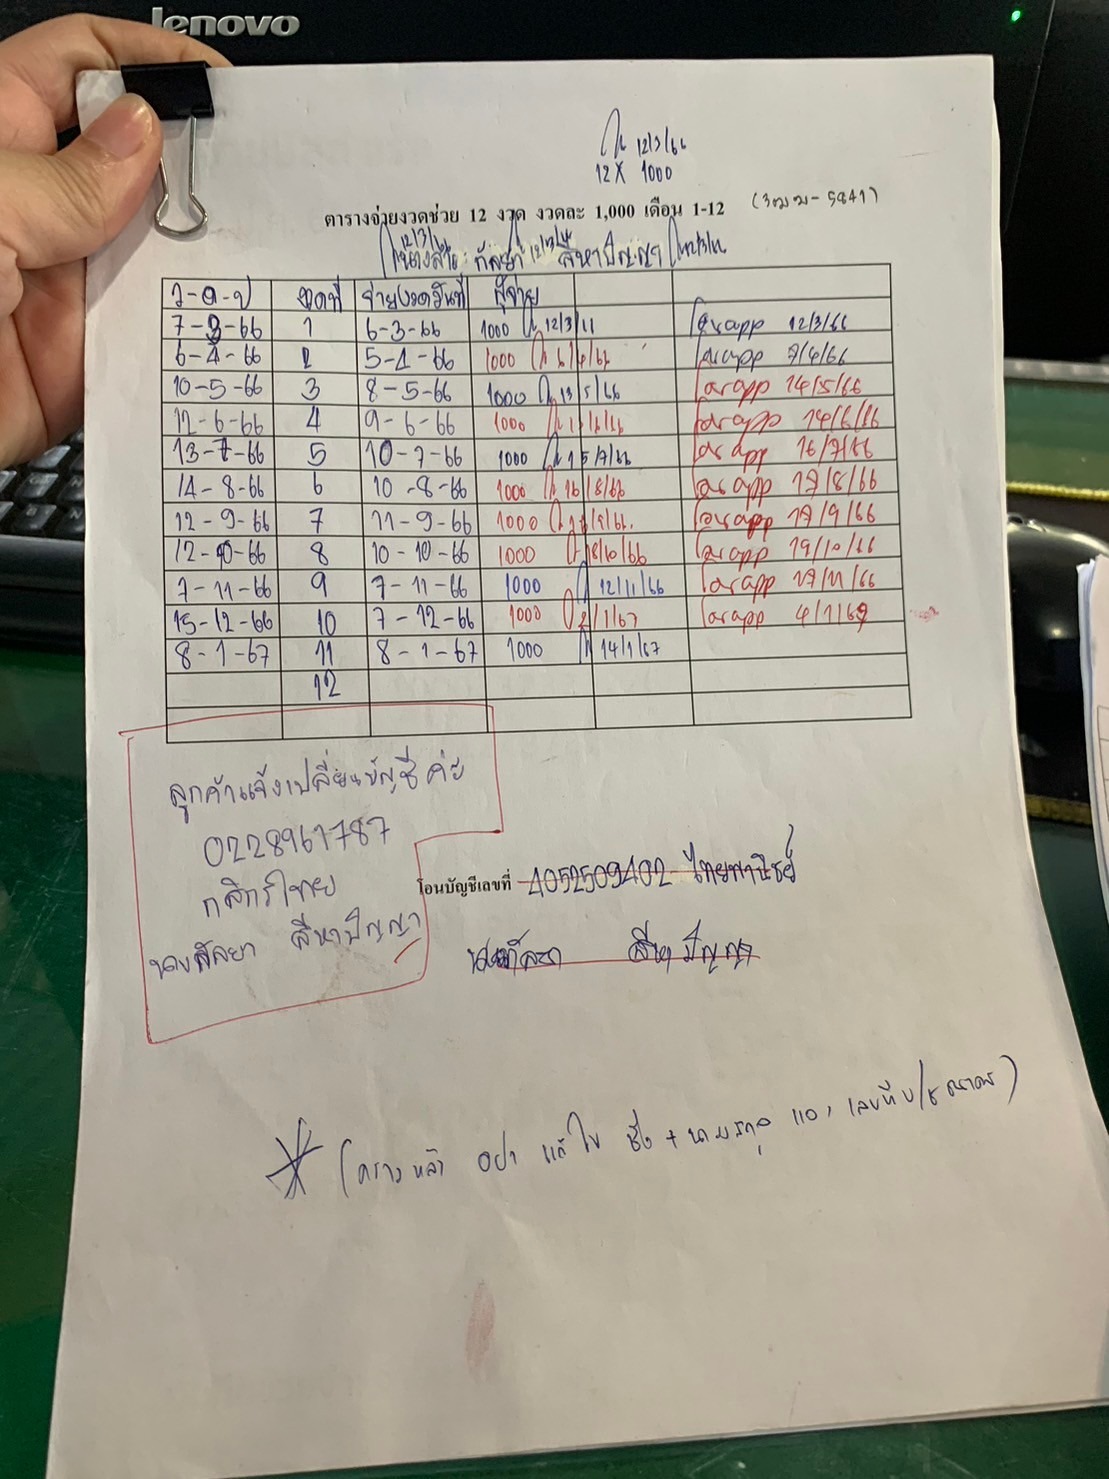 lenovo
12/3/66
12 X 1000
ตารางจ่ายงวดช่วย 12 งวด งวดละ 1,000 เดือน 1-12
12/3/66
กัลยา สีหาปัญญา
ว-ด-ป งวดที่ จ่ายงวดวันที่ ผู้จ่าย
7-3-66 1 6-3-66 1000 12/3/ app 12/3/66
6-4-66 2 5-4-66 1000 app 7/4/66
10-5-66 3 8-5-66 1000 13/5/66 app 14/5/66
12-6-66 4 9-6-66 1000 app 14/6/66
13-7-66 5 10-7-66 1000 15/7/66 app 16/7/66
14-8-66 6 10-8-66 1000 16/8/66 app 17/8/66
12-9-66 7 11-9-66 1000 app 17/9/66
12-10-66 8 10-10-66 1000 18/10/66 app 19/10/66
7-11-66 9 7-11-66 1000 12/11/66 app 17/11/66
15-12-66 10 7-12-66 1000 2/1/67 app 4/1/67
8-1-67 11 8-1-67 1000 14/1/67
12
ลูกค้าแจ้งเปลี่ยนบัญชีค่ะ
0228961787
กสิกรไทย
นางกัลยา สีหาปัญญา
โอนบัญชีเลขที่ 4052509402 ไทยพาณิชย์
สีหาปัญญา
(คราวหลัง อย่า แก้ไข ชื่อ + นามสกุล และ เลขที่ บ/ช ธนาคาร)